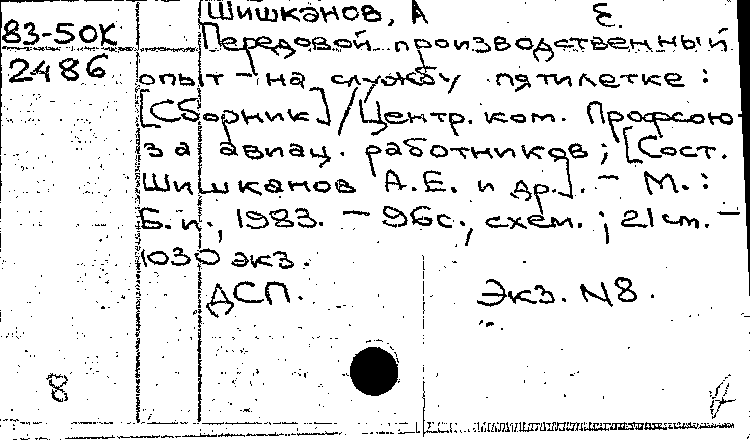 Шишканов, А Е.
83-50К
Передовой производственный
2486
опыт - на службу пятилетке :
[Сборник] / Центр. ком. Профсою-
за авиац. работников ; [Сост.
Шишканов А.Е. и др.]. - М. :
Б.и., 1983. - 96с., схем. ; 21 см. -
1030 экз.
ДСП. Экз. N8.
8